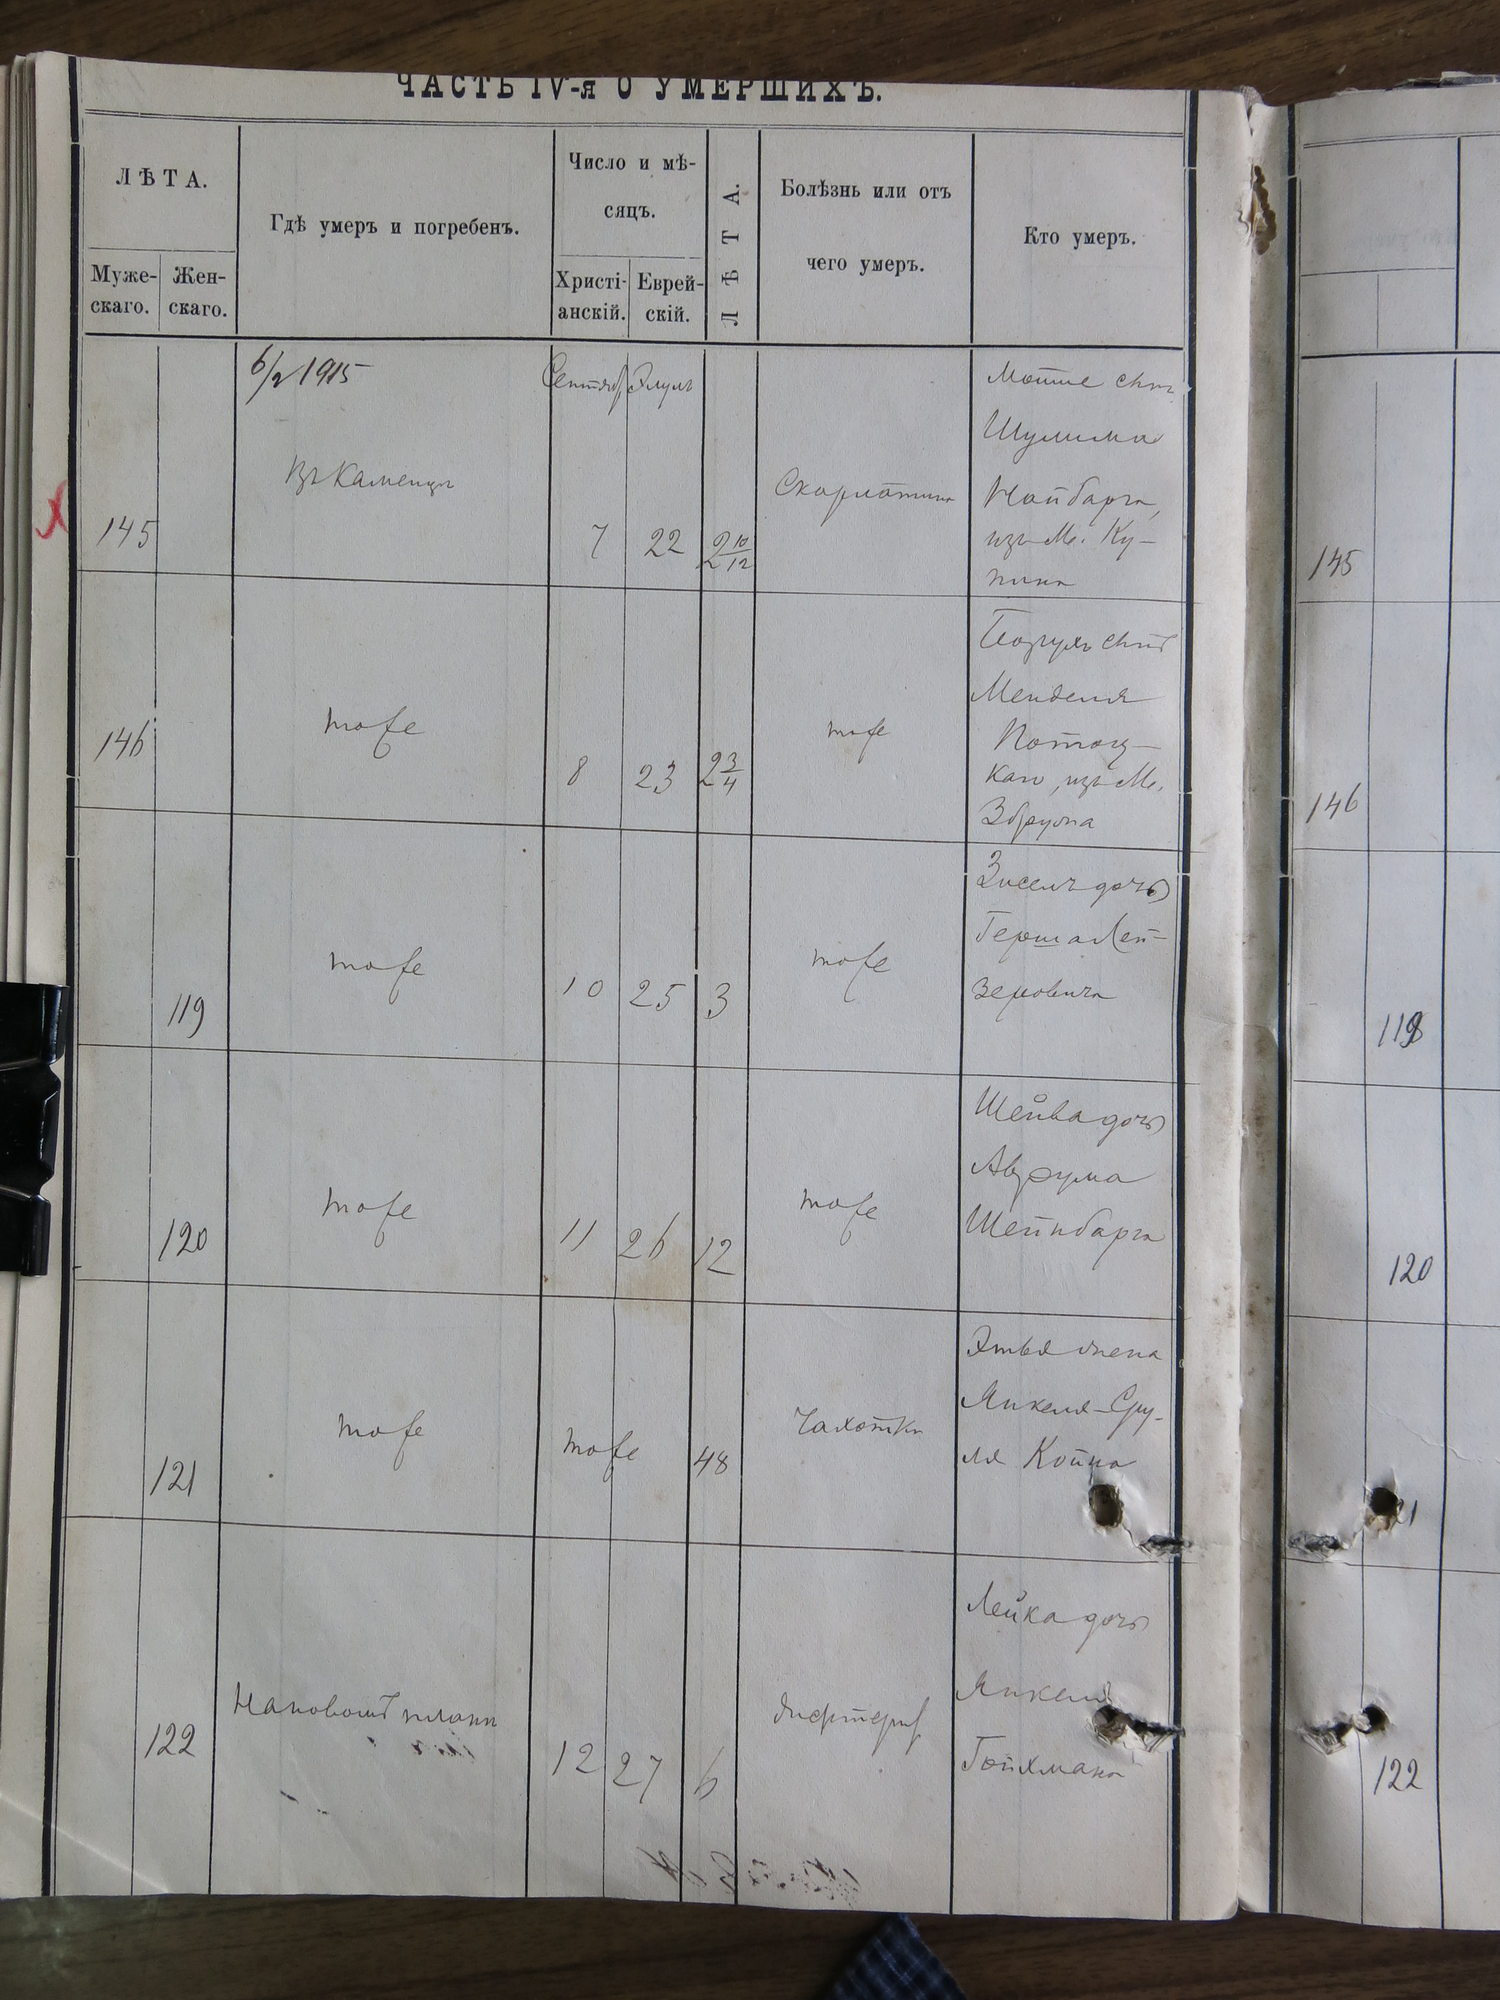 ЧАСТЬ IV-я О УМЕРШИХЪ.
ЛѢТА.
Муже-
скаго.
Жен-
скаго.
Гдѣ умеръ и погребенъ.
Число и мѣ-
сяцъ.
Христі-
анскій.
Еврей-
скій.
ЛѢТА.
Болѣзнь или отъ
чего умеръ.
Кто умеръ.
1915
Сентябр Элулъ
145
Въ Каменцѣ
7
22
2 10/12
Скарлатина
Мотие сынъ
Шулима
Найбарга,
изъ М. Ку-
пина
146
тоже
8
23
2 3/4
тоже
сынъ
Менделя
Потоц-
каго, изъ М.
119
тоже
10
25
3
тоже
Зисель дочь
Герша Лей-
зеровича
120
тоже
11
26
12
тоже
Шейва дочь
Аврума
Штейнбарга
121
тоже
тоже
48
Чахотка
Этья жена
Янкеля-Сру-
ля Койна
122
На новомъ планѣ
12
27
6
Лейка дочь
Янкеля
Гойхмана
145
146
119
120
122